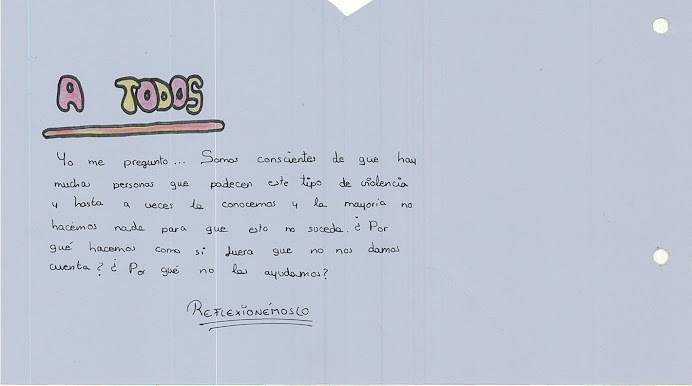 A TODOS
Yo me pregunto... Somos conscientes de que hay
muchas personas que padecen este tipo de violencia
y hasta a veces la conocemos y la mayoría no
hacémos nada para que esto no suceda. ¿Por
qué hacemos como si fuera que no nos damos
cuenta? ¿Por qué no las ayudamos?
REFLEXIONÉMOSLO